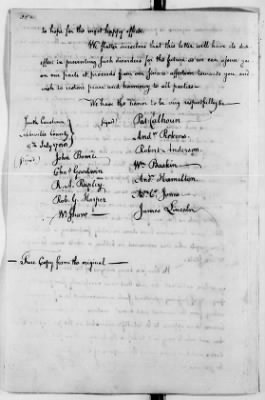 to hope for the most happy effects.
We flatter ourselves that this letter will have its due
effect in preventing such disorders for the future as we can assure you
on our parts it proceeds from our sincere affection towards you and
wish to restore peace and harmony to all parties.—
We have the honor to be very respectfully &c.
South Carolina (signed) Pat. Calhoun
Abbeville County And.w Pickens
9th July 1788 Robert Anderson
(signed) John Bowie Wm. Baskin
Chas. Goodwin And.w Hamilton
R. A. Rapley
Rob. G. Harper Ad. C. Jones
W. Shaw — James Lincoln
— True Copy from the original —